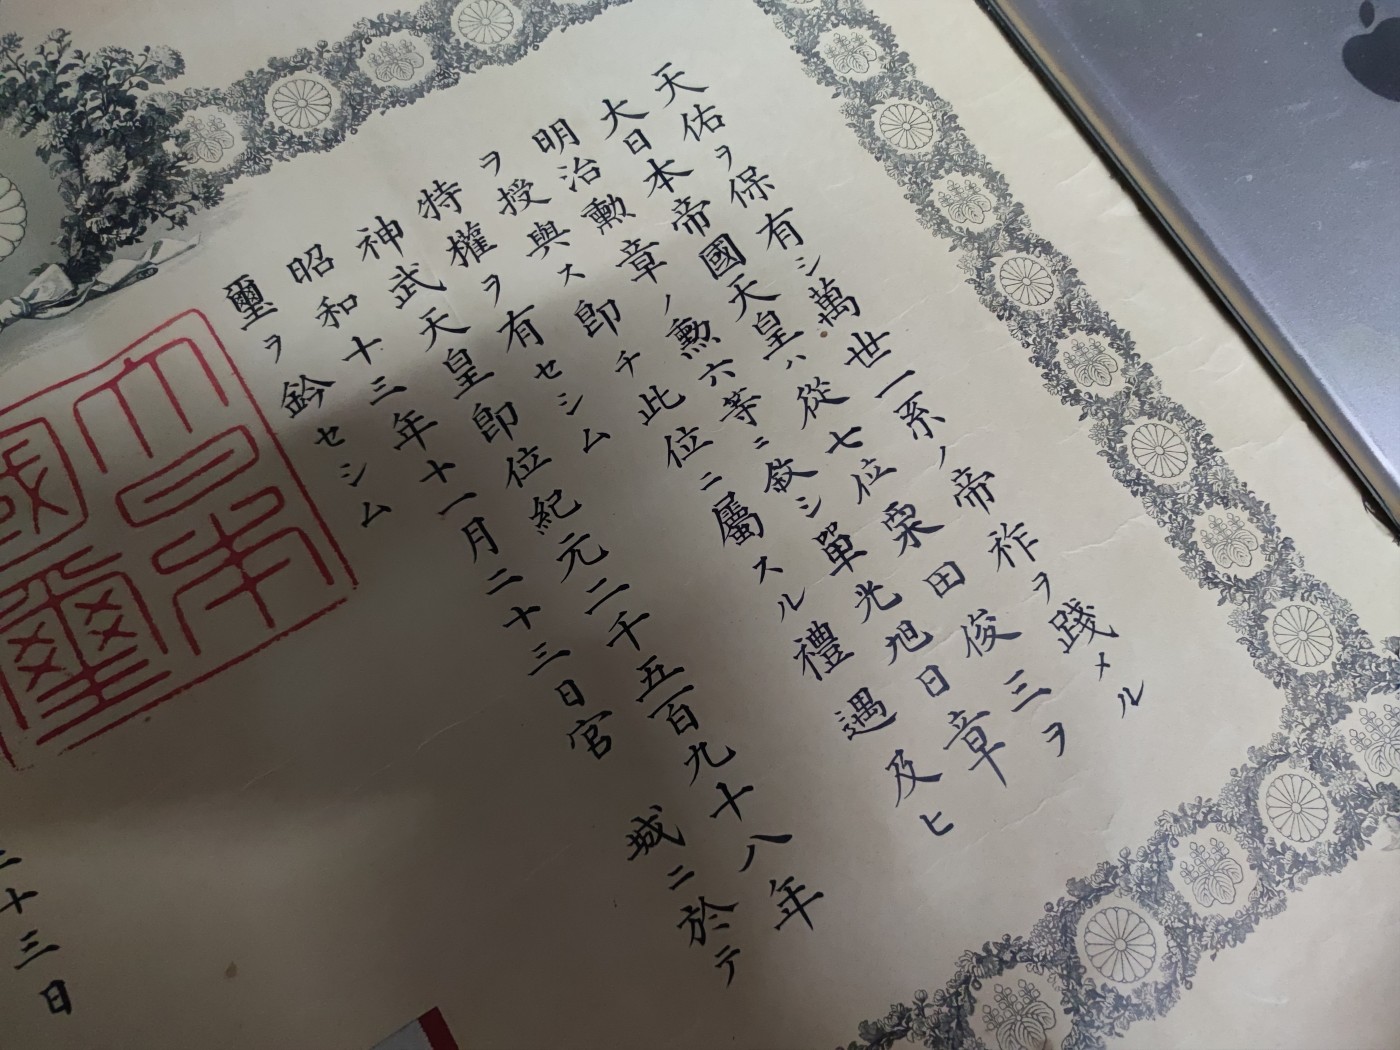 天佑ヲ保有シ萬世一系ノ帝祚ヲ踐メル
大日本帝國天皇ハ從七位栗田俊三ヲ
明治勳章ノ勳六等ニ敘シ單光旭日章
ヲ授與ス即チ此位ニ屬スル禮遇及ヒ
特權ヲ有セシム
神武天皇即位紀元二千五百九十八年
昭和十三年十一月二十三日宮城ニ於テ
璽ヲ鈐セシム
大日本
國璽
十三日